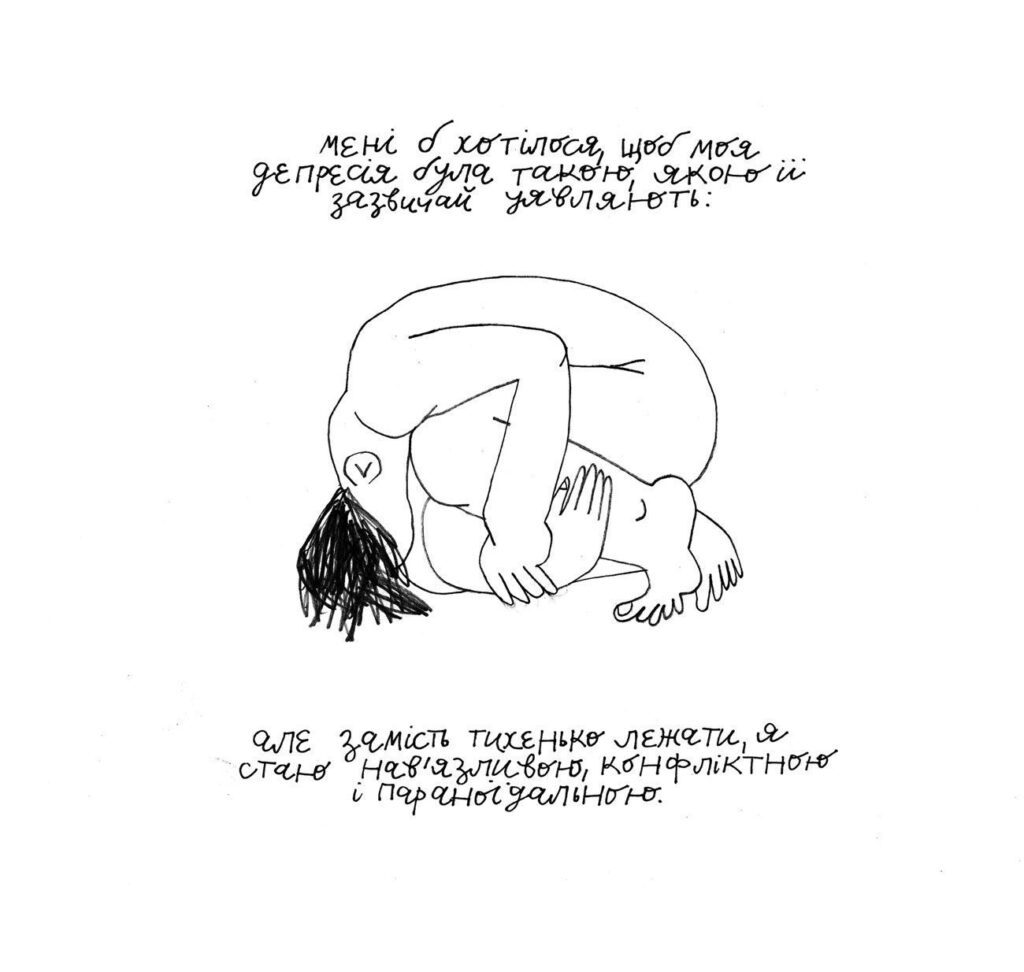 мені б хотілося, щоб моя
депресія була такою, якою її
зазвичай уявляють:
але замість тихенько лежати, я
стаю нав'язливою, конфліктною
і параноїдальною.